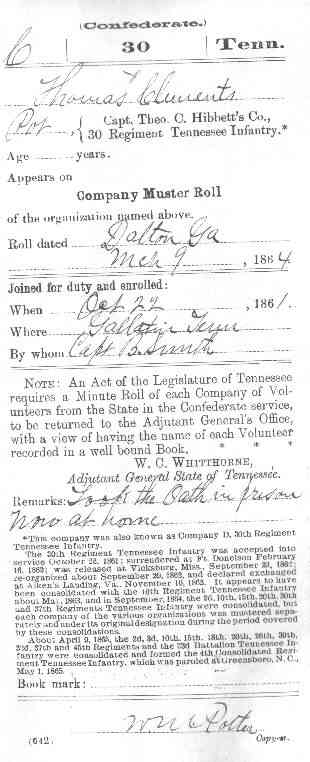 (Confederate.)
C 30 Tenn.
Thomas Clements
Pvt, Capt. Theo. C. Hibbett's Co.,
30 Regiment Tennessee Infantry.*
Age years.
Appears on
Company Muster Roll
of the organization named above.
Roll dated Dalton Ga
Mch 9, 1864
Joined for duty and enrolled:
When Oct 22, 1861.
Where Gallatin Tenn
By whom Capt B. Smith
NOTE: An Act of the Legislature of Tennessee
requires a Minute Roll of each Company of Vol-
unteers from the State in the Confederate service,
to be returned to the Adjutant General's Office,
with a view of having the name of each Volunteer
recorded in a well bound Book. * * *
W. C. WHITTHORNE,
Adjutant General State of Tennessee.
Remarks: Took the Oath in prison
now at home
*This company was also known as Company D, 30th Regiment
Tennessee Infantry.
The 30th Regiment Tennessee Infantry was accepted into
service October 22, 1861; surrendered at Ft. Donelson February
16, 1862; was released at Vicksburg, Miss., September 23, 1862;
re-organized about September 29, 1862, and declared exchanged
at Aiken's Landing, Va., November 10, 1862. It appears to have
been consolidated with the 10th Regiment Tennessee Infantry
about Mar., 1863, and in September, 1864, the 2d, 10th, 15th, 20th, 30th
and 37th Regiments Tennessee Infantry were consolidated, but
each company of the various organizations was mustered sepa-
rately and under its original designation during the period covered
by these consolidations.
About April 9, 1865, the 2d, 3d, 10th, 15th, 18th, 20th, 26th, 30th,
32d, 37th and 45th Regiments and the 23d Battalion Tennessee In-
fantry were consolidated and formed the 4th Consolidated Regi-
ment Tennessee Infantry, which was paroled at Greensboro, N. C.,
May 1, 1865.
Book mark:
Potter
(642) Copyist.